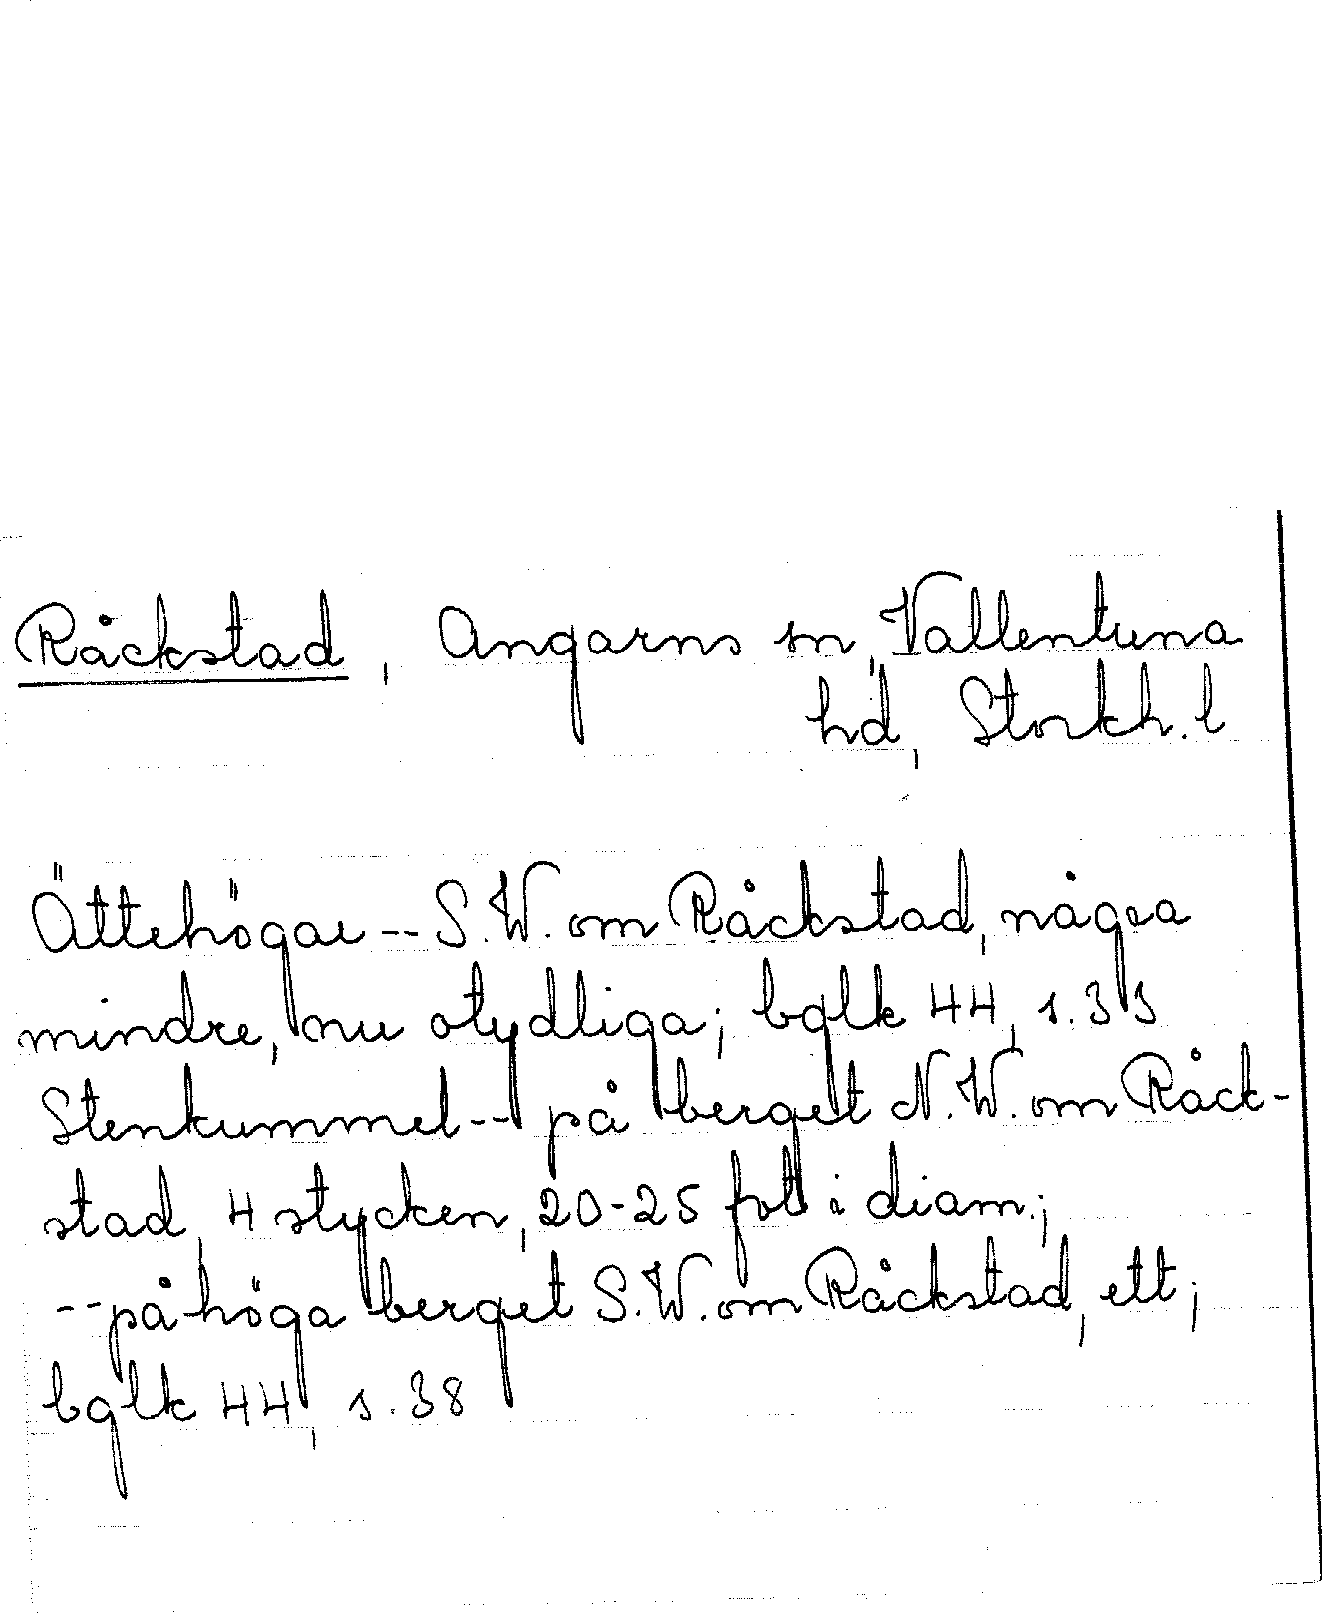 Råckstad, Angarns sn, Vallentuna
hd, Stockh. l
Ättehögar -- S.W. om Råckstad, några
mindre, nu otydliga; bglk 44, s. 33
Stenkummel -- på berget N.W. om Råck-
stad, 4 stycken, 20-25 fot i diam.;
-- på höga berget S.W. om Råckstad, ett;
bglk 44, s. 38